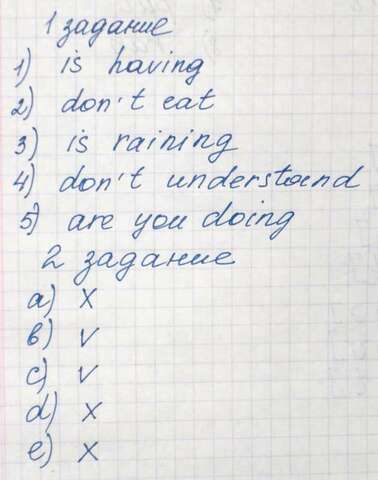 1 задание
1) is having
2) don't eat
3) is raining
4) don't understand
5) are you doing
2 задание
a) x
в) v
c) v
d) x
e) x